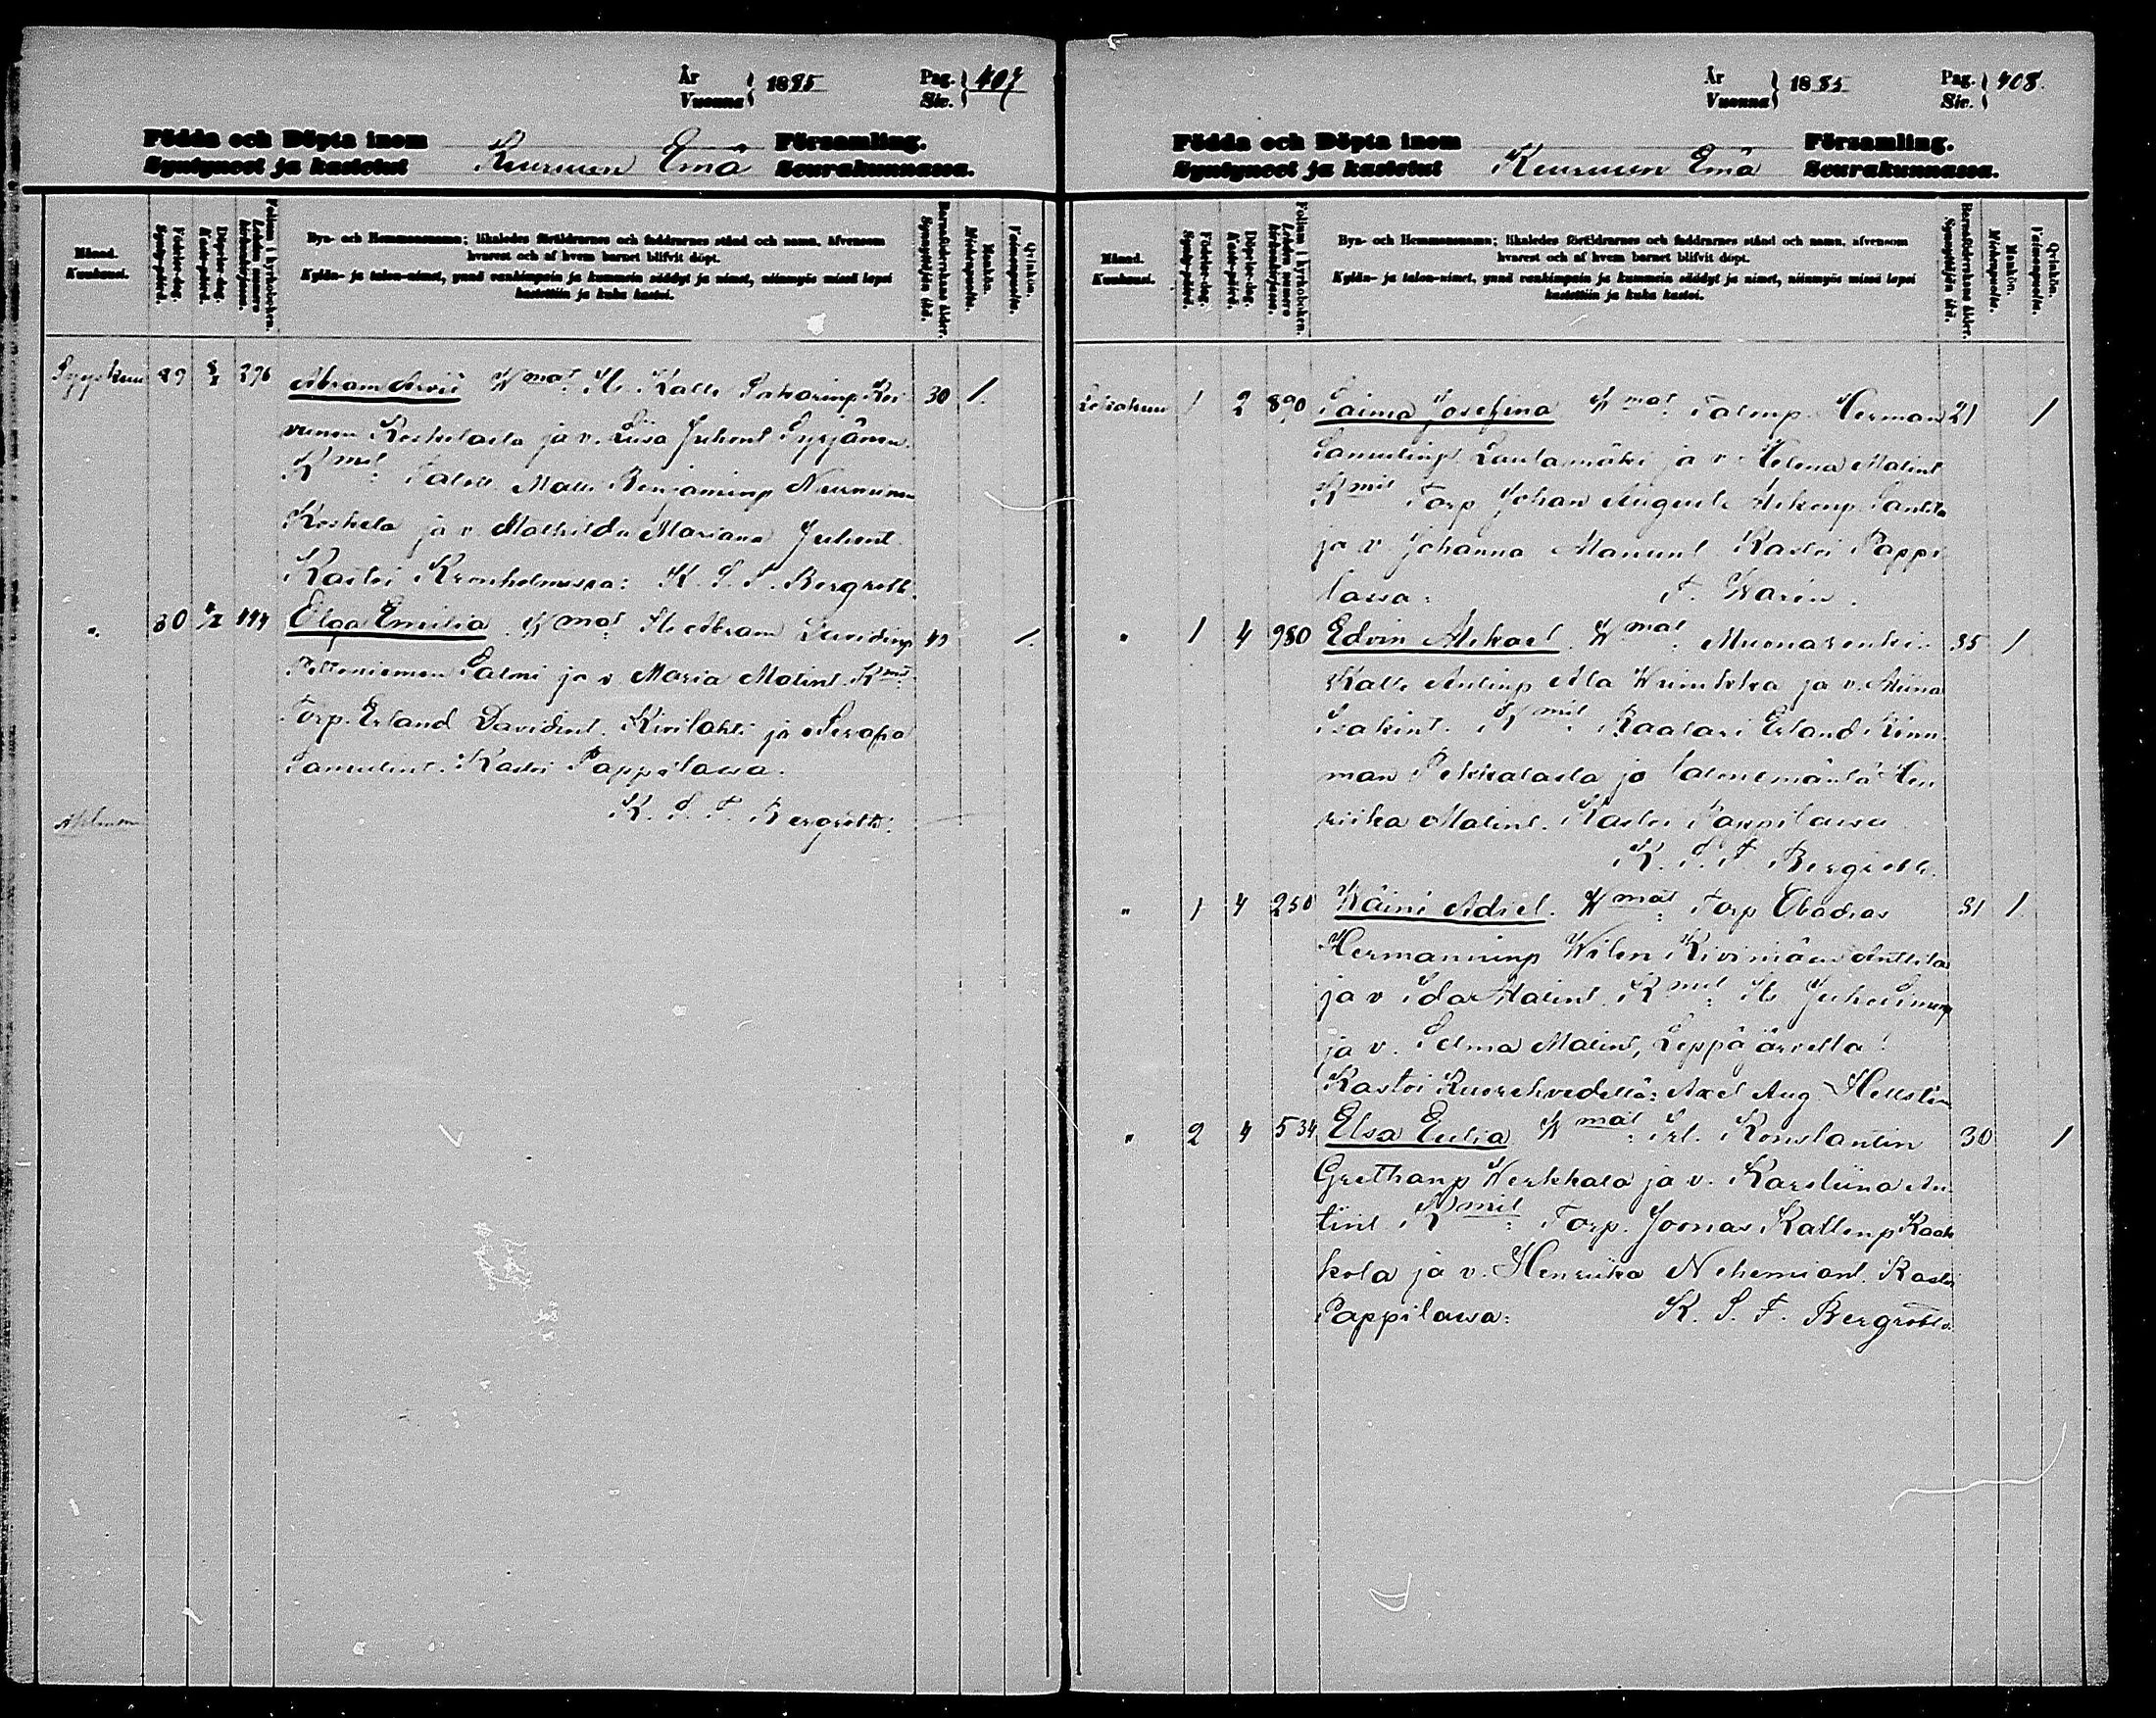 År
Vuonna } 1885
Pag.
Siv. } 407
Födda och Döpta inom
Syntyneet ja kastetut Keuruun Emä
Församling.
Seurakunnassa.
Månad.
Kuukausi.
Födelse-dag.
Synty-päivä.
Döpelse-dag.
Kaste-päivä.
Folium i kyrkoboken.
Lehden numero kirkonkirjassa.
Byn- och Hemmansnamn; likaledes föräldrarnes och faddrarnes stånd och namn, äfvensom
hvarest och af hvem barnet blifvit döpt.
Kylän- ja talon-nimet, ynnä vanhimpain ja kummein säädyt ja nimet, niinmyös missä lapsi
kastettiin ja kuka kastoi.
Barnaföderskans ålder.
Synnyttäjän ikä.
Mankön.
Miehenpuolta.
Qvinkön.
Vaimonpuolta.
Syyskuu 29 396 Abram Arvii Wmat Kalle 30 1.
Koskelasta ja v. Liisa Juhont
Kmit Matts Benjaminp
Koskela ja v. Mathilda Mariana Juhont
Kastoi Kronholmissa: K. S. F. Bergroth.
" 30 444 Olga Emilia Wmat Abram Davidinp 1.
Salmi ja v Maria Matint. Kmit
Torp. Erland Davidint. Kivilahti ja Serafia
Samulint. Kastoi Pappilassa.
K. S. F. Bergroth.
År
Vuonna } 1885
Pag.
Siv. } 408.
Födda och Döpta inom
Syntyneet ja kastetut Keuruun Emä
Församling.
Seurakunnassa.
Månad.
Kuukausi.
Födelse-dag.
Synty-päivä.
Döpelse-dag.
Kaste-päivä.
Folium i kyrkoboken.
Lehden numero kirkonkirjassa.
Byn- och Hemmansnamn; likaledes föräldrarnes och faddrarnes stånd och namn, äfvensom
hvarest och af hvem barnet blifvit döpt.
Kylän- ja talon-nimet, ynnä vanhimpain ja kummein säädyt ja nimet, niinmyös missä lapsi
kastettiin ja kuka kastoi.
Barnaföderskans ålder.
Synnyttäjän ikä.
Mankön.
Miehenpuolta.
Qvinkön.
Vaimonpuolta.
Lokakuu 1 2 890 Saima Josefina Wmat Herman 21 1
Samulinp. Lautamäki ja v. Helena Matint
Kmit Torp Johan August
ja v. Johanna Manunt Kastoi Pappi
lassa: F. Warén.
" 1 4 980 Edvin Mikael. Wmat Muonarenki 35 1
Kalle Antinp Ala ja v. Miina
Isakint. Kmit Raatari Erland Kinn
man Pekkalasta ja talonemäntä Hen
riika Matint. Kastoi Pappilassa
K. S. F. Bergroth.
" 1 4 250 Wäinö Adiel. Wmat Torp Obadias 31 1.
Hermanninp Wilen Kivimäen Anttila
ja v Ida Matint. Kmit Juho Simonp
ja v. Selma Matint, Leppäjärvellä
Kastoi Kuorehvedellä: Axel Aug. Hellstén
" 2 4 534 Elsa Eulia Wmat Konstantin 30 1
Grethanp Werkkala ja v. Karoliina An
tint Kmit Torp. Joonas Kallenp
kola ja v. Henriika Nehemiant. Kastoi
Pappilassa: K. S. F. Bergroth.